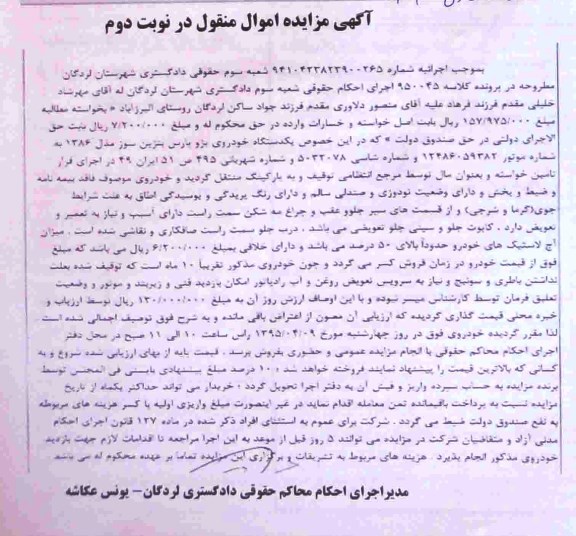 آگهی مزایده اموال منقول در نوبت دوم
بموجب اجرائیه شماره ۹۴۱۰۴۲۳۸۲۳۹۰۰۲۶۵ شعبه سوم حقوقی دادگستری شهرستان لردگان
مطروحه در پرونده کلاسه ۹۵۰۰۴۵ اجرای احکام حقوقی شعبه سوم دادگستری شهرستان لردگان له آقای مهرشاد
خلیلی مقدم فرزند فرهاد علیه آقای منصور دلاوری مقدم فرزند جواد ساکن لردگان روستای البرزاباد " بخواسته مطالبه
مبلغ ۱۵۷/۹۷۵/۰۰۰ ریال بابت اصل خواسته و خسارات وارده در حق محکوم له و مبلغ ۷/۲۰۰/۰۰۰ ریال بابت حق
الاجرای دولتی در حق صندوق دولت " که در این خصوص یکدستگاه خودروی پژو پارس بنزین سوز مدل ۱۳۸۶ به
شماره موتور ۱۲۴۸۶۰۵۹۳۸۲ و شماره شاسی ۵۰۳۳۰۷۸ و شماره شهربانی ۴۹۵ ص ۵۱ ایران ۴۹ در اجرای قرار
تامین خواسته و بعنوان مال توسط مرجع انتظامی توقیف و به پارکینگ منتقل گردید و خودروی موصوف فاقد بیمه نامه
و ضبط و پخش و دارای وضعیت تودوزی و صندلی سالم و دارای رنگ پریدگی و پوسیدگی اطاق به علت شرایط
جوی(گرما و شرجی) و از قسمت های سپر جلوو عقب و چراغ مه شکن سمت راست دارای آسیب و نیاز به تعمیر و
تعویض دارد . کاپوت جلو و سینی جلو تعویضی می باشد . درب جلو سمت راست صافکاری و نقاشی شده است . میزان
آج لاستیک های خودرو حدوداً بالای ۵۰ درصد می باشد و دارای خلافی بمبلغ ۶/۲۰۰/۰۰۰ ریال می باشد که مبلغ
فوق از قیمت خودرو در زمان فروش کسر می گردد و چون خودروی مذکور تقریباً ۱۰ ماه است که توقیف شده بعلت
نداشتن باطری و سوئیچ و نیاز به سرویس تعویض روغن و آب رادیاتور امکان بازدید فنی و زیربند و موتور و وضعیت
تعلیق فرمان توسط کارشناس میسر نبوده و با این اوصاف ارزش روز آن به مبلغ ۱۳۰/۰۰۰/۰۰۰ ریال توسط ارزیاب و
خبره محلی قیمت گذاری گردیده که ارزیابی آن مصون از اعتراض باقی مانده و به شرح فوق توصیف اجمالی شده است .
لذا مقرر گردیده خودروی فوق در روز چهارشنبه مورخ ۱۳۹۵/۰۴/۰۹ راس ساعت ۱۰ الی ۱۱ صبح در محل دفتر
اجرای احکام محاکم حقوقی با انجام مزایده عمومی و حضوری بفروش برسد . قیمت پایه از بهای ارزیابی شده شروع و به
کسانی که بالاترین قیمت را پیشنهاد نمایند فروخته خواهد شد ۱۰۰ درصد مبلغ پیشنهادی بایستی فی المجلس توسط
برنده مزایده به حساب سپرده واریز و فیش آن به دفتر اجرا تحویل گردد ، خریدار می تواند حداکثر یکماه از تاریخ
مزایده نسبت به پرداخت باقیمانده ثمن معامله اقدام نماید در غیر اینصورت مبلغ واریزی اولیه با کسر هزینه های مربوطه
به نفع صندوق دولت ضبط می گردد . شرکت برای عموم به استثنای افراد ذکر شده در ماده ۱۲۷ قانون اجرای احکام
مدنی آزاد و متقاضیان شرکت در مزایده می توانند ۵ روز قبل از موعد به این اجرا مراجعه تا اقدامات لازم جهت بازدید
خودروی مذکور انجام پذیرد . هزینه های مربوط به تشریفات و برگزاری این مزایده تماماً بر عهده محکوم له می باشد
مدیراجرای احکام محاکم حقوقی دادگستری لردگان – یونس عکاشه